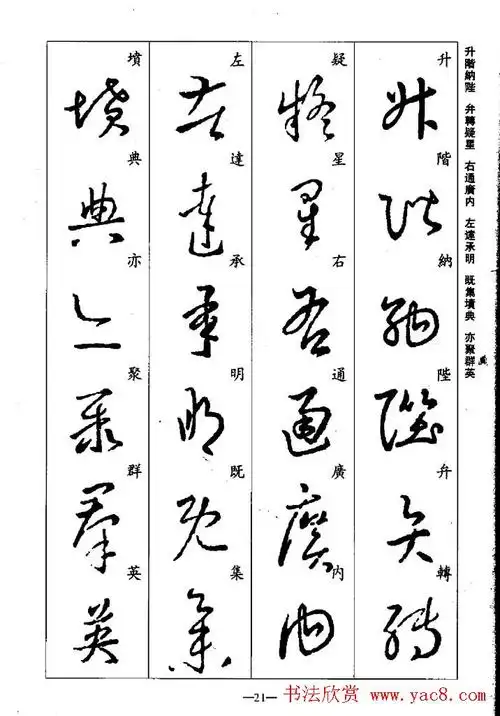 升階納陛 弁轉疑星 右通廣内 左達承明 既集墳典 亦聚群英
升階納陛弁轉
疑星右通廣内
左達承明既集
墳典亦聚群英
—21—
书法欣赏
www.yac8.com